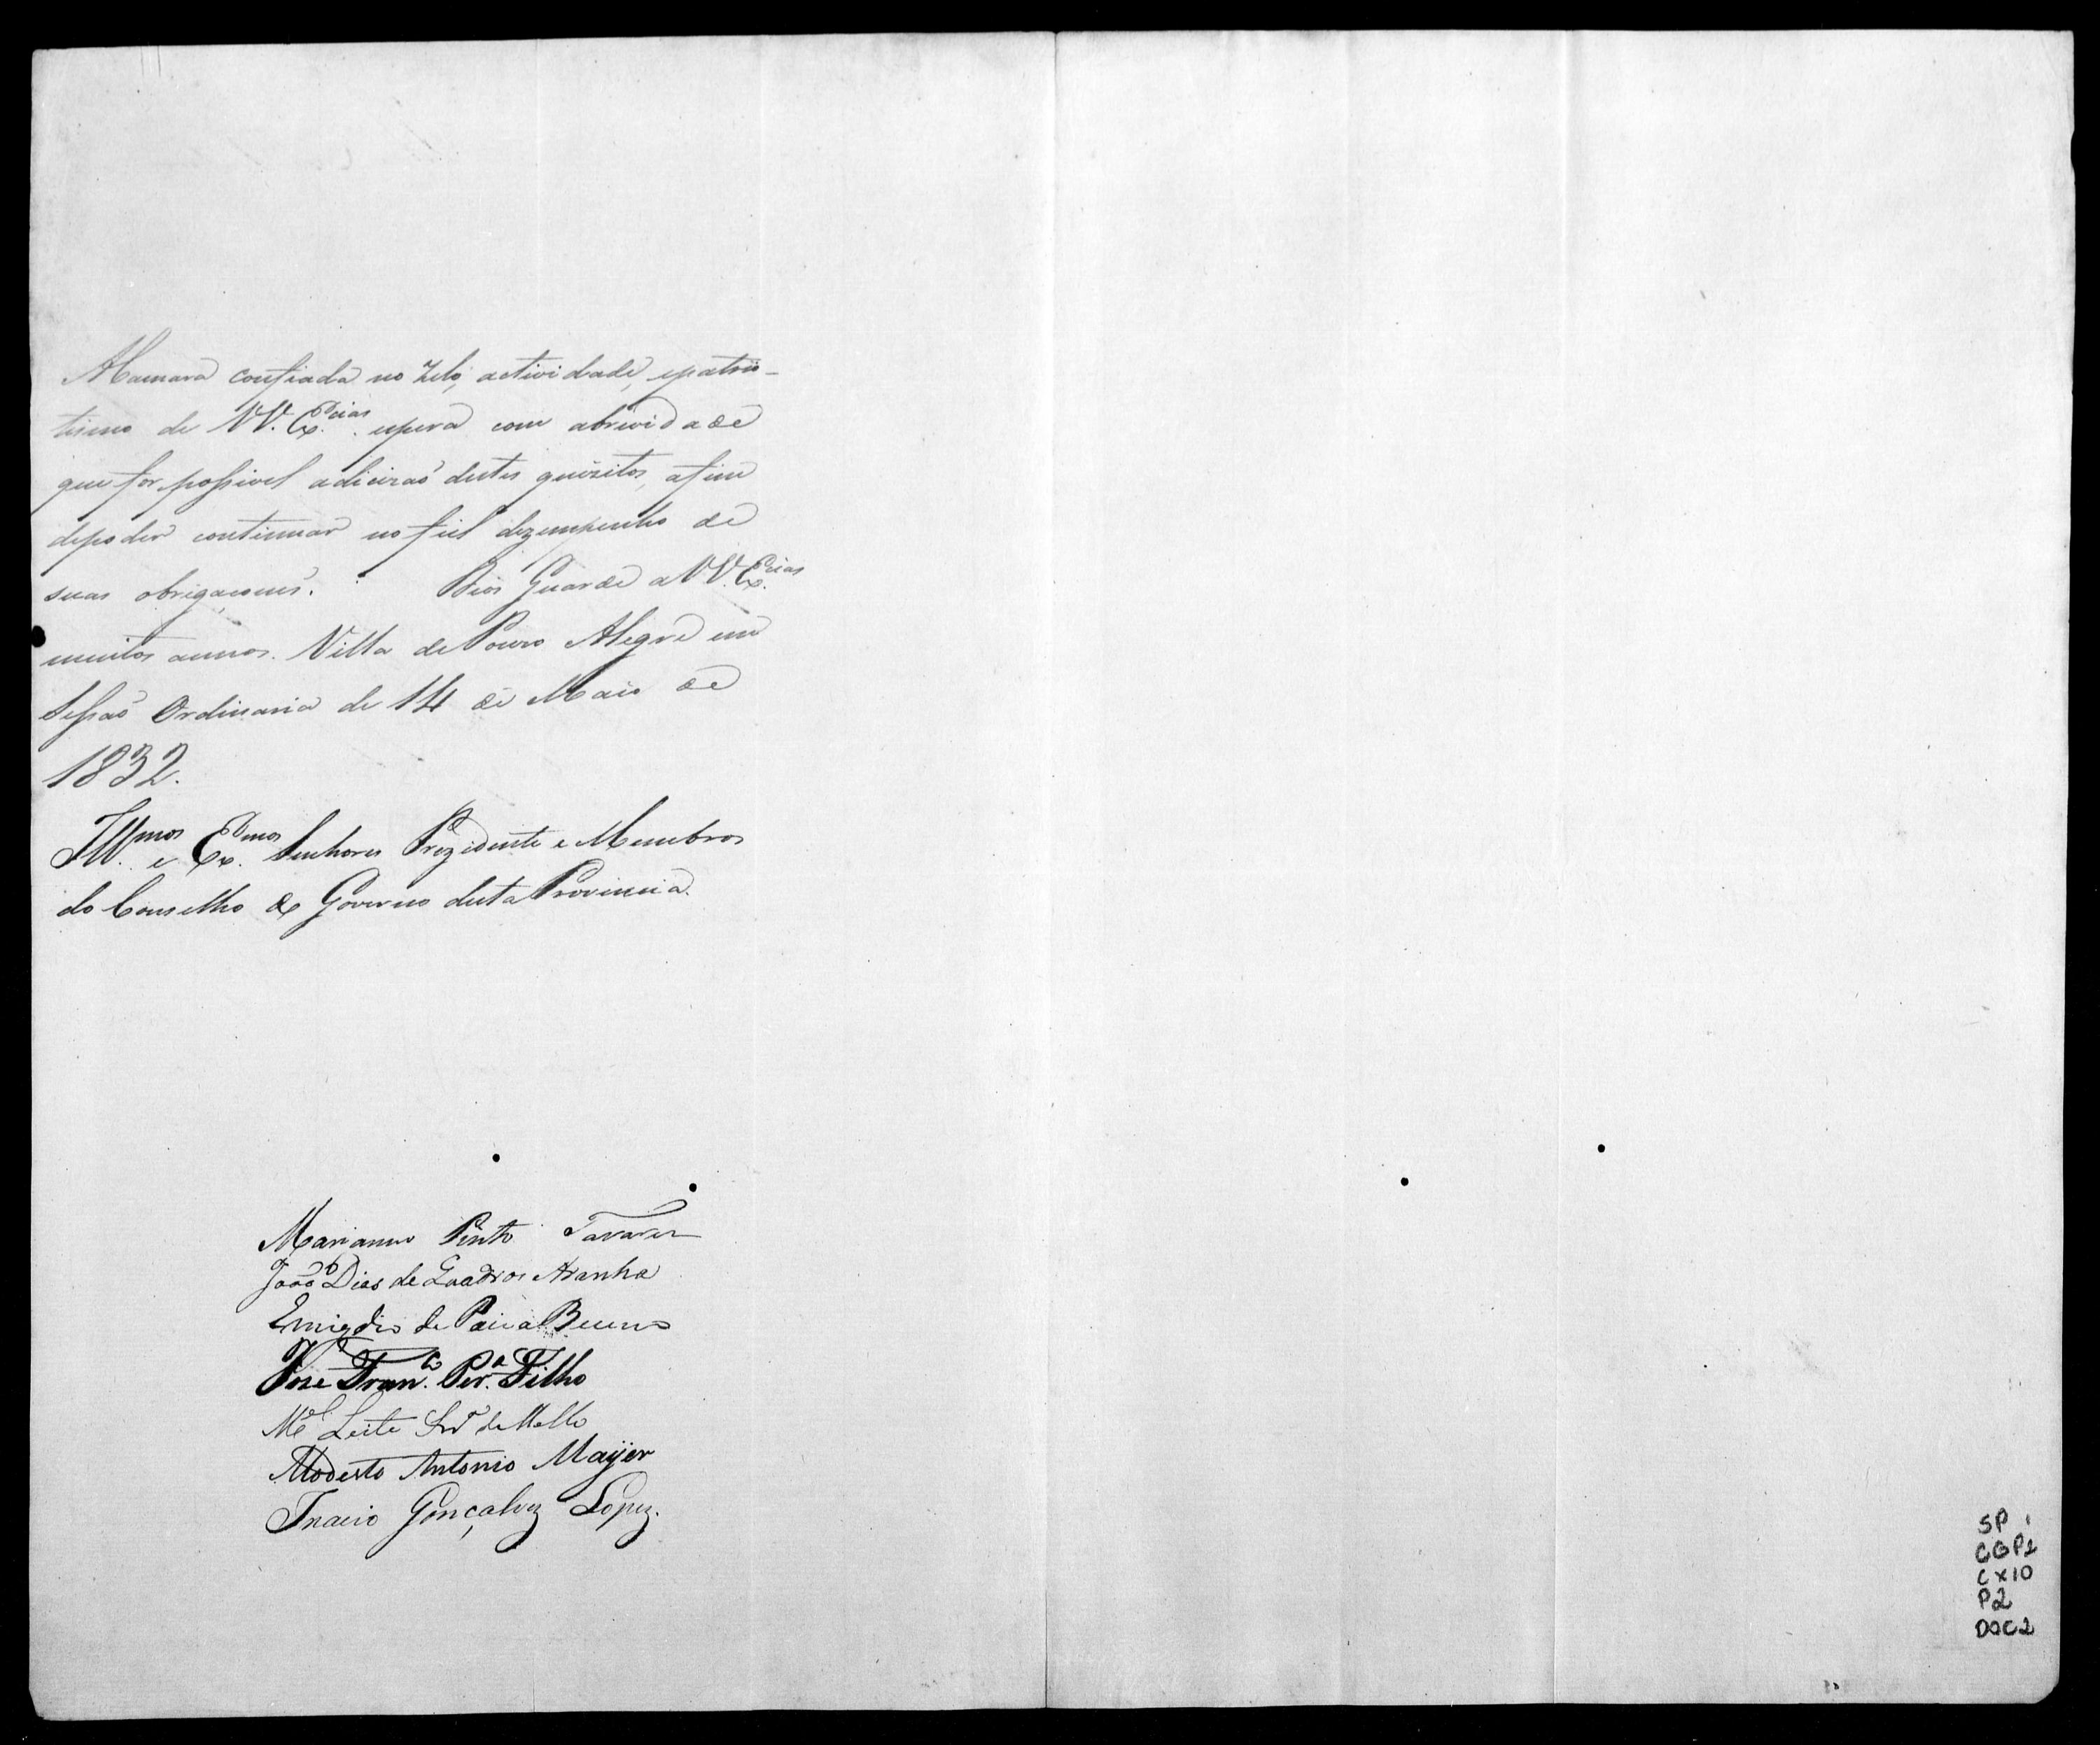 A Camara confiada no Zelo, actividade, epatrio-
tismo de VV. Ex.cias espera com abrivida de
que for possivel a dicizaõ destes quizitos, afim
depoder continuar no fiel dezempenho de
suas obrigaçoens. Deos Guarde a VV. Ex.cias
muitos annos. Villa de Pouzo Alegre em
Sessaõ Ordinaria de 14 de Maio de
1832.
Ill.mos e Ex.mos Senhores Prezidente e Membros
do Conselho de Governo desta Provincia.
Marianno Pinto Tavares
João Dias de Quadros Aranha
Emigdio de Paiva Bueno
Jose Fran.co Per.a Filho
M.el Leite de Mello
Modesto Antonio Mayer
Inacio Gonçalvez Lopez.
SP
CGP1
CX10
P2
DOC2